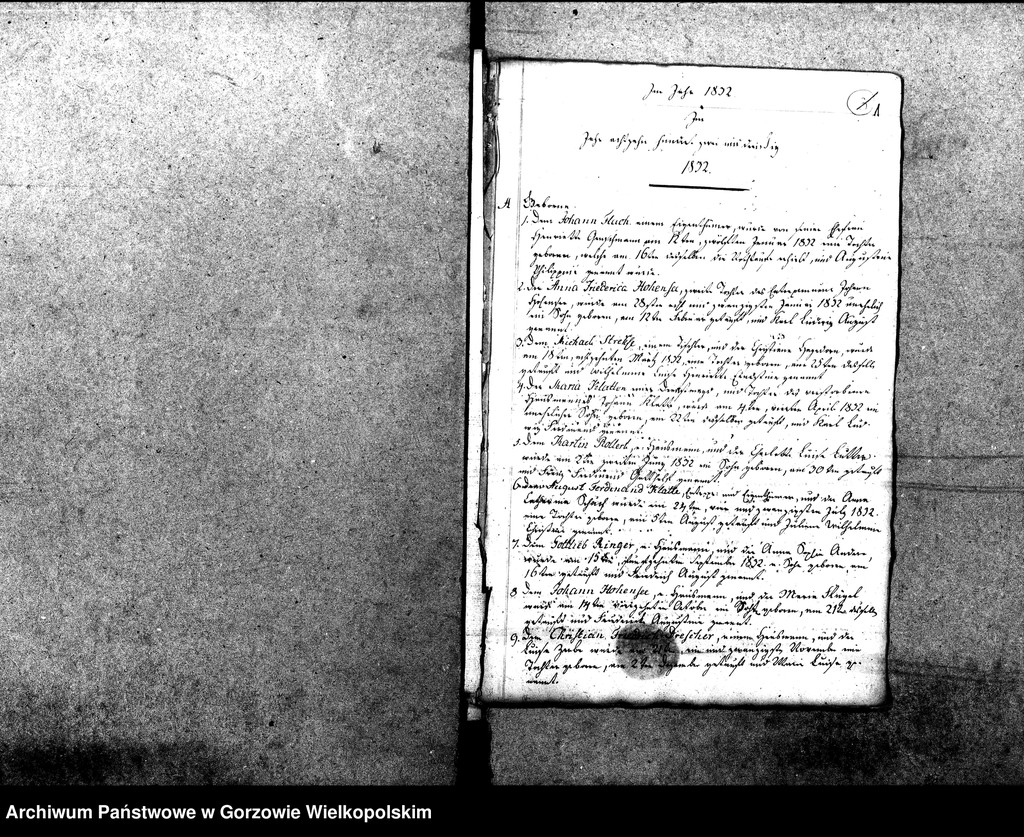 Im Jahr 1832
1
Im
Jahr achtzehn hundert zwei und dreißig
1832.
A Geborne.
1. Dem Johann Flach einem Eigenthümer, wurde von seiner Ehefrau
Henriette am 12ten, zwölften Januar 1832 eine Tochter
geboren, welche am 16ten desselben die Nothtaufe erhielt, und Augustine
Philippine genannt wurde.
2. Der Anna Friederica Hohensee, zweite Tochter des Johann
Hohensee, wurde am 28sten acht und zwanzigsten Januar 1832 unehelich
ein Sohn geboren, am 12ten Februar getauft, und Karl Ludwig August
genannt.
3. Dem Michael Strehse, einem Tischler, und der Christiane Hagedorn, wurde
am 18ten, achtzehnten März 1832, eine Tochter geboren, am 25ten desselb.
getauft und Wilhelmine Luise Henriette Ernestine genannt
4. Der Maria Klatten einer und Tochter des verstorbenen
Hausmannes Johann Klatte, wurde am 4ten, vierten April 1832 ein
unehelicher Sohn geboren, am 22ten desselben getauft, und Karl Lud-
wig Ferdinand genannt.
5. Dem Martin Rollert, e. Hausmann, und der Charlotte Luise
wurde am 2ten zweiten Juny 1832 ein Sohn geboren, am 30ten getauft
und Franz Ferdinand Gotthilf genannt.
6. dem August Ferdinand Klatte, und Eigenthümer, und der Anna
Catharina Schach wurde am 24ten, vier und zwanzigsten July 1832.
eine Tochter geboren, am 5ten August getauft und Juliane Wilhelmine
Christine genannt.
7. Dem Gottlieb Ringer, e. Hausmann, und der Anna Sophie
wurde am 15ten, fünfzehnten September 1832 e. Sohn geboren am
16ten getauft und Friedrich August genannt.
8 Dem Johann Hohensee, e. Hausmann, und der Maria Flügel
wurde am 14ten Octobr. ein geboren, am 21ten desselb.
getauft und Friedericke Augustine genannt.
9. Dem Christian Friedrich Drescher, einem Hausmann, und der
Luise wurde am 21ten, ein und zwanzigsten November eine
Tochter geboren, am 2ten Dezember getauft und Marie Luise ge-
nannt.
Archiwum Państwowe w Gorzowie Wielkopolskim